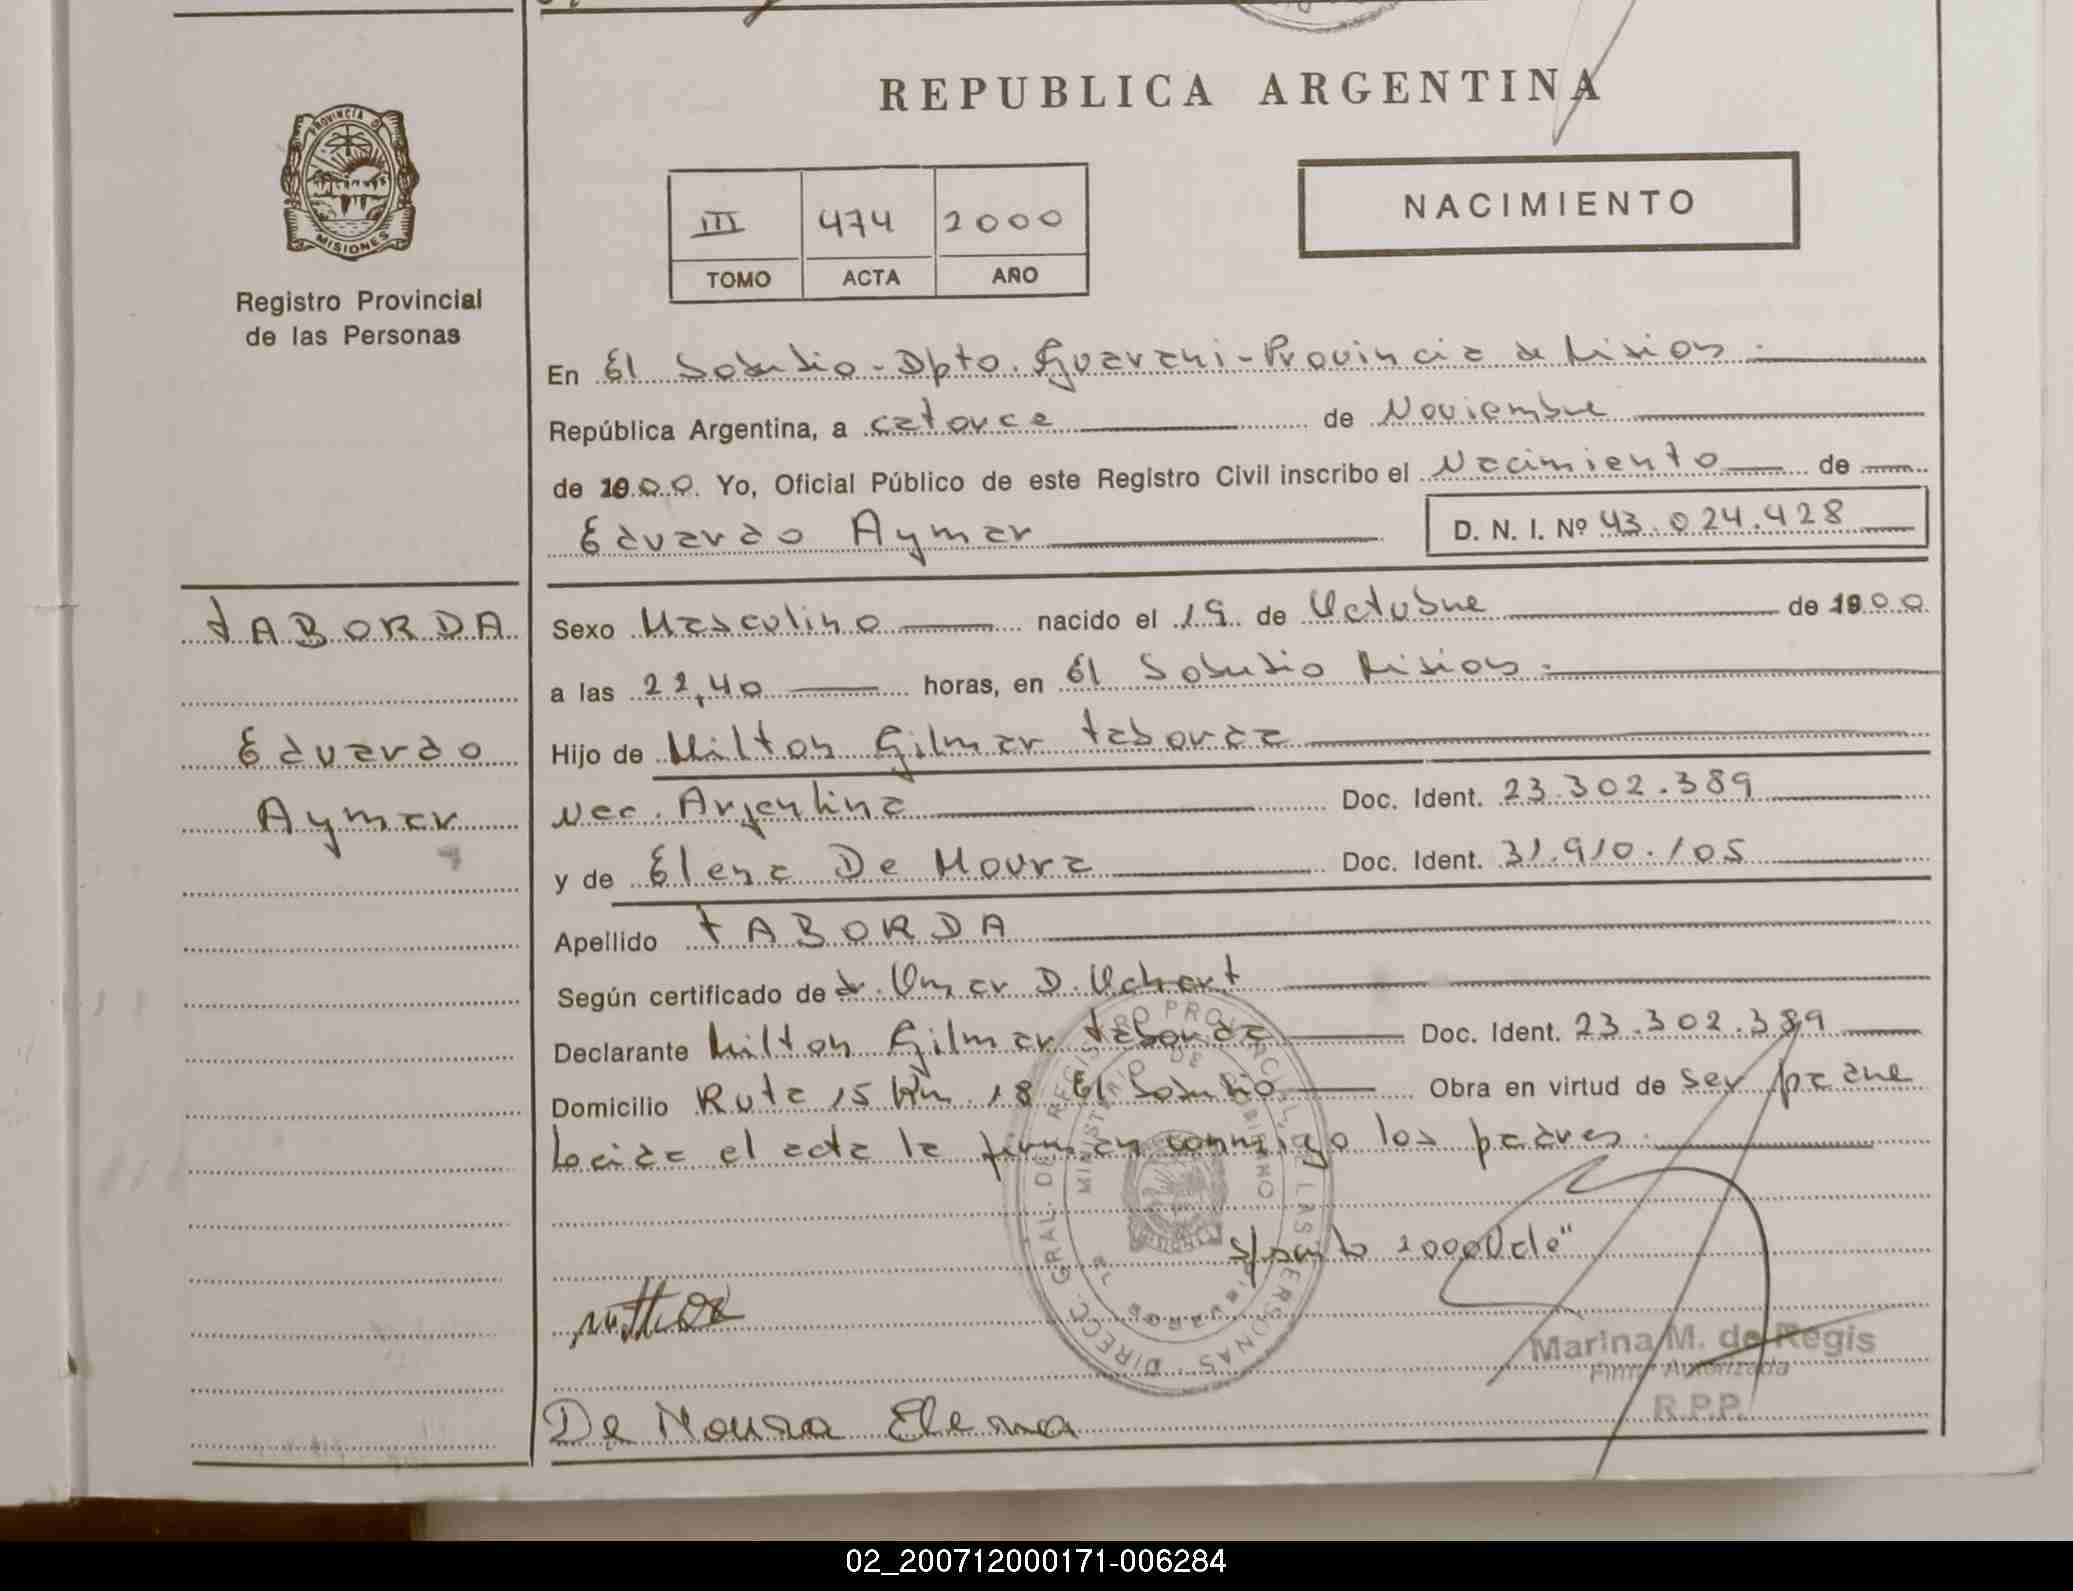 REPUBLICA ARGENTINA
PROVINCIA DE
MISIONES
Registro Provincial
de las Personas
III 474 2000
TOMO ACTA AÑO
NACIMIENTO
En El Soberbio - Dpto. Guarani - Provincia de Misiones.
República Argentina, a catorce de Noviembre
de 2000. Yo, Oficial Público de este Registro Civil inscribo el Nacimiento de
Eduardo Aymar D. N. I. Nº 43.024.428
TABORDA
Eduardo
Aymar
Sexo Masculino nacido el 19 de Octubre de 2000
a las 22,40 horas, en El Soberbio Misiones.
Hijo de Milton Gilmar Taborda
Nac. Argentina Doc. Ident. 23.302.389
y de Elena De Moura Doc. Ident. 31.910.105
Apellido TABORDA
Según certificado de dr. Omar D.
Declarante Milton Gilmar Taborda Doc. Ident. 23.302.389
Domicilio Ruta 15 Km 18 El Soberbio Obra en virtud de ser padre
Leida el acta la firman conmigo los padres.
2000
DIRECC. GRAL. DE REGISTRO PROVINCIAL DE LAS PERSONAS
MINISTERIO DE GOBIERNO
Marina M. de Regis
Firma Autorizada
R.P.P.
De Moura Elena
02_200712000171-006284